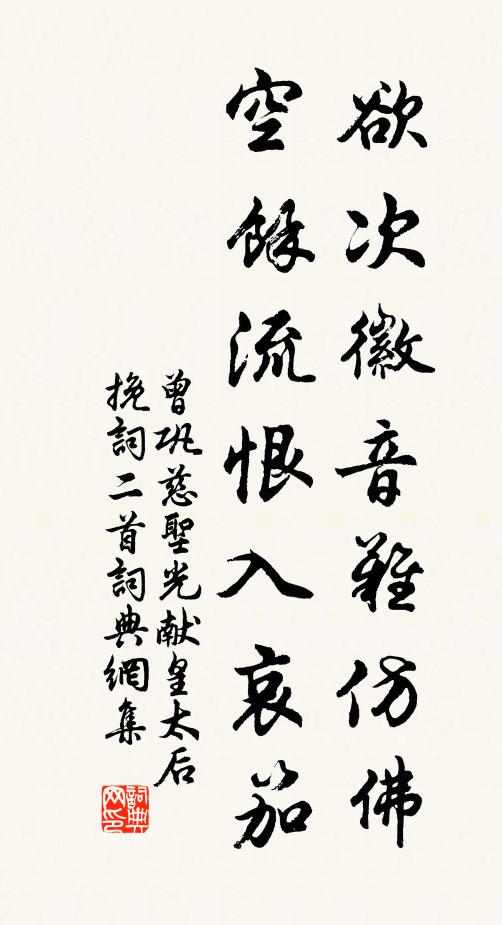 欲次徽音難仿佛
空餘流恨入哀笳
曾巩慈聖光献皇太后
挽詞二首詞典網集
詞典
网印